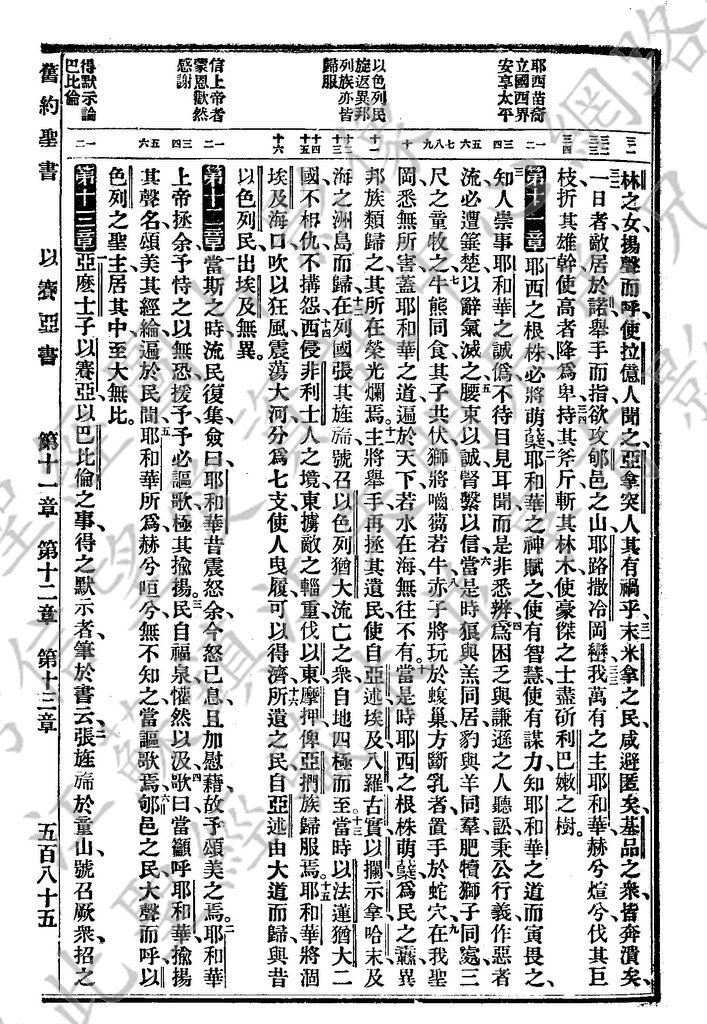 林之女揚聲而呼使拉億人聞之亞拿突人其有禍乎末米拿之民咸避匿矣基品之衆皆奔潰矣
一日者敵居於諾舉手而指欲攻郇邑之山耶路撒冷岡巒我萬有之主耶和華赫兮煊兮伐其巨
枝折其雄幹使高者降爲卑持其斧斤斬其林木使豪傑之士盡斫利巴嫩之樹
第十一章 耶西之根株必將萌蘖耶和華之神賦之使有智慧使有謀力知耶和華之道而寅畏之
知人崇事耶和華之誠僞不待目見耳聞而是非悉辨爲困乏與謙遜之人聽訟秉公行義作惡者
流必遭箠楚以辭氣滅之腰束以誠腎繫以信當是時狼與羔同居豹與羊同羣肥犢獅子同處三
尺之童牧之牛熊同食其子共伏獅將嚙蒭若牛赤子將玩於蝮巢方斷乳者置手於蛇穴在我聖
岡悉無所害蓋耶和華之道遍於天下若水在海無往不有當是時耶西之根株萌蘖爲民之纛異
邦族類歸之其所在榮光爛焉主將舉手再拯其遺民使自亞述埃及八羅古實以攔示拿哈末及
海之洲島而歸在列國張其旌旆號召以色列猶大流亡之衆自地四極而至當時以法蓮猶大二
國不相仇不搆怨西侵非利士人之境東擄敵之輜重伐以東摩押俾亞捫族歸服焉耶和華將涸
埃及海口吹以狂風震蕩大河分爲七支使人曳履可以得濟所遺之民自亞述由大道而歸與昔
以色列民出埃及無異
第十二章 當斯之時流民復集僉曰耶和華昔震怒余今怒已息且加慰藉故予頌美之焉耶和華
上帝拯余予恃之以無恐援予予必謳歌極其揄揚民自福泉懽然以汲歌曰當籲呼耶和華揄揚
其聲名頌美其經綸遍於民間耶和華所爲赫兮喧兮無不知之當謳歌焉郇邑之民大聲而呼以
色列之聖主居其中至大無比
第十三章 亞麽士子以賽亞以巴比倫之事得之默示者筆於書云張旌旆於童山號召厥衆招之
耶西苗裔
立國西界
安享太平
以色列民
旋返異邦
列族亦皆
歸服
信上帝者
蒙恩歡然
感謝
得默示論
巴比倫
舊約聖書 以賽亞書 第十一章 第十二章 第十三章 五百八十五